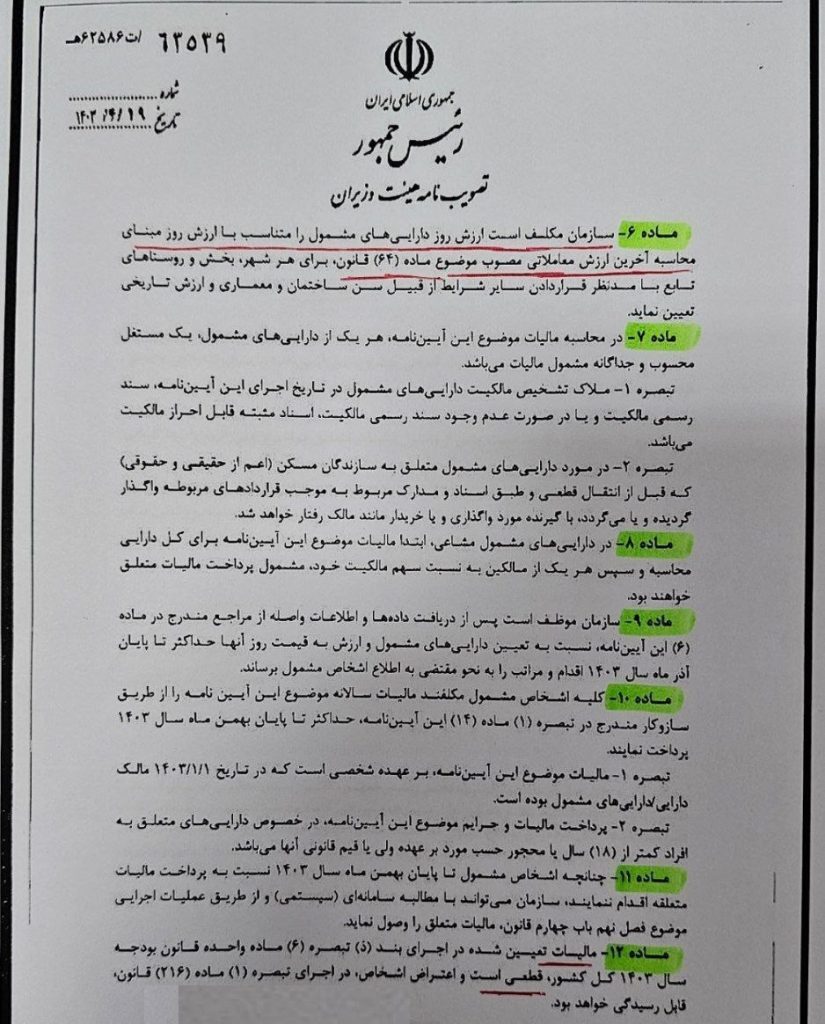 ۶۳۵۳۹ /ت۶۲۵۸۶هـ
شماره
تاریخ ۱۴۰۳/۴/۱۹
جمهوری اسلامی ایران
رئیس جمهور
تصویب نامه هیئت وزیران
ماده ۶- سازمان مکلف است ارزش روز دارایی‌های مشمول را متناسب با ارزش روز مبنای
محاسبه آخرین ارزش معاملاتی مصوب موضوع ماده (۶۴) قانون، برای هر شهر، بخش و روستاهای
تابع با مدنظر قراردادن سایر شرایط از قبیل سن ساختمان و معماری و ارزش تاریخی
تعیین نماید.
ماده ۷- در محاسبه مالیات موضوع این آیین‌نامه، هر یک از دارایی‌های مشمول، یک مستغل
محسوب و جداگانه مشمول مالیات می‌باشد.
تبصره ۱- ملاک تشخیص مالکیت دارایی‌های مشمول در تاریخ اجرای این آیین‌نامه، سند
رسمی مالکیت و یا در صورت عدم وجود سند رسمی مالکیت، اسناد مثبته قابل احراز مالکیت
می‌باشد.
تبصره ۲- در مورد دارایی‌های مشمول متعلق به سازندگان مسکن (اعم از حقیقی و حقوقی)
که قبل از انتقال قطعی و طبق اسناد و مدارک مربوط به موجب قراردادهای مربوطه واگذار
گردیده و یا می‌گردد، با گیرنده مورد واگذاری و یا خریدار مانند مالک رفتار خواهد شد.
ماده ۸- در دارایی‌های مشمول مشاعی، ابتدا مالیات موضوع این آیین‌نامه برای کل دارایی
محاسبه و سپس هر یک از مالکین به نسبت سهم مالکیت خود، مشمول پرداخت مالیات متعلق
خواهند بود.
ماده ۹- سازمان موظف است پس از دریافت داده‌ها و اطلاعات واصله از مراجع مندرج در ماده
(۶) این آیین‌نامه، نسبت به تعیین دارایی‌های مشمول و ارزش به قیمت روز آنها حداکثر تا پایان
آذر ماه سال ۱۴۰۳ اقدام و مراتب را به نحو مقتضی به اطلاع اشخاص مشمول برساند.
ماده ۱۰- کلیه اشخاص مشمول مکلفند مالیات سالانه موضوع این آیین نامه را از طریق
سازوکار مندرج در تبصره (۱) ماده (۱۴) این آیین‌نامه، حداکثر تا پایان بهمن ماه سال ۱۴۰۳
پرداخت نمایند.
تبصره ۱- مالیات موضوع این آیین‌نامه، بر عهده شخصی است که در تاریخ ۱۴۰۳/۱/۱ مالک
دارایی/دارایی‌های مشمول بوده است.
تبصره ۲- پرداخت مالیات و جرایم موضوع این آیین‌نامه، در خصوص دارایی‌های متعلق به
افراد کمتر از (۱۸) سال یا محجور حسب مورد بر عهده ولی یا قیم قانونی آنها می‌باشد.
ماده ۱۱- چنانچه اشخاص مشمول تا پایان بهمن ماه سال ۱۴۰۳ نسبت به پرداخت مالیات
متعلقه اقدام ننمایند، سازمان می‌تواند با مطالبه سامانه‌ای (سیستمی) و از طریق عملیات اجرایی
موضوع فصل نهم باب چهارم قانون، مالیات متعلق را وصول نماید.
ماده ۱۲- مالیات تعیین شده در اجرای بند (ذ) تبصره (۶) ماده واحده قانون بودجه
سال ۱۴۰۳ کل کشور، قطعی است و اعتراض اشخاص، در اجرای تبصره (۱) ماده (۲۱۶) قانون،
قابل رسیدگی خواهد بود.